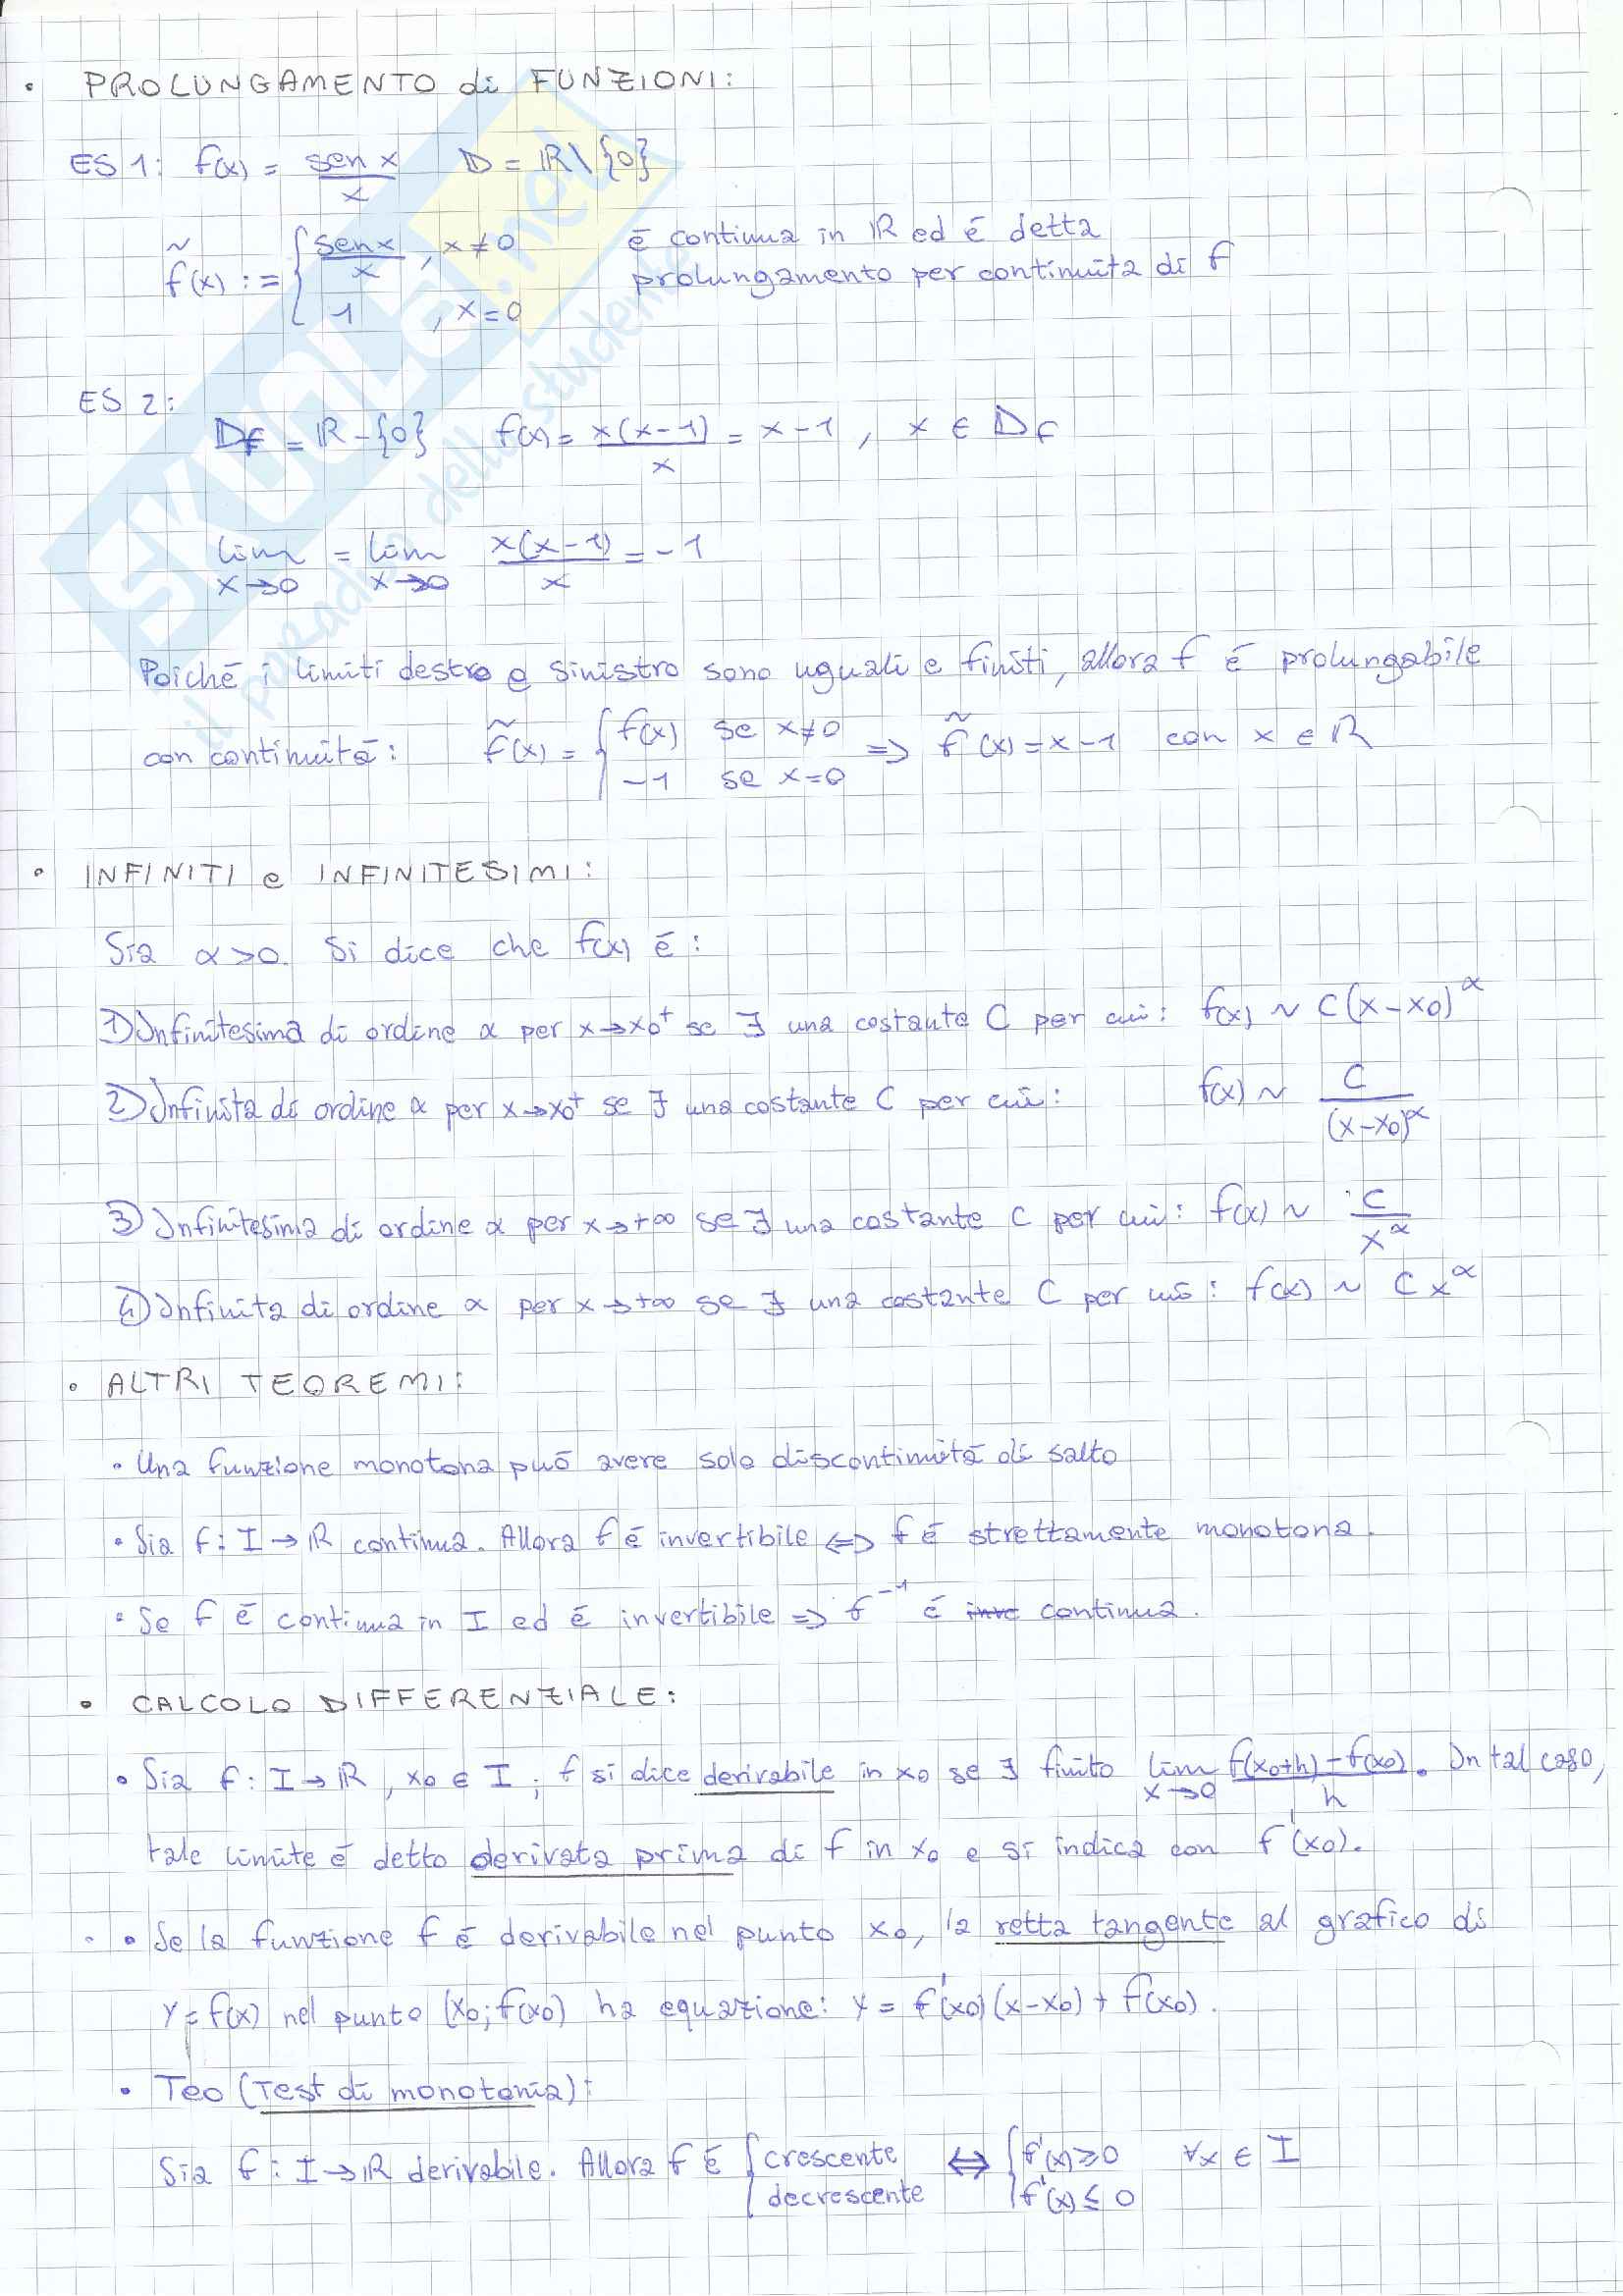 • PROLUNGAMENTO di FUNZIONI:
ES 1: f(x) = sen x / x   D = ℝ\{0}
f̃(x) := { sen x / x , x ≠ 0   é continua in ℝ ed é detta
1 , x = 0   prolungamento per continuitá di f
ES 2:
Df = ℝ - {0}   f(x) = x(x-1) / x = x-1 , x ∈ Df
lim x→0 = lim x→0 x(x-1) / x = -1
Poiché i limiti destro e sinistro sono uguali e finiti, allora f é prolungabile
con continuitá: f̃(x) = { f(x) se x≠0 ⇒ f̃(x) = x-1 con x ∈ ℝ
-1 se x=0
• INFINITI e INFINITESIMI:
Sia α>0. Si dice che f(x) é:
1) Infinitesima di ordine α per x→x0⁺ se ∃ una costante C per cui: f(x) ~ C(x-x0)^α
2) Infinita di ordine α per x→x0⁺ se ∃ una costante C per cui: f(x) ~ C / (x-x0)^α
3) Infinitesima di ordine α per x→+∞ se ∃ una costante C per cui: f(x) ~ C / x^α
4) Infinita di ordine α per x→+∞ se ∃ una costante C per cui: f(x) ~ C x^α
• ALTRI TEOREMI:
• Una funzione monotona puó avere solo discontinuitá di salto
• Sia f: I→ℝ continua. Allora f é invertibile ⇔ f é strettamente monotona.
• Se f é continua in I ed é invertibile ⇒ f⁻¹ é inve continua.
• CALCOLO DIFFERENZIALE:
• Sia f: I→ℝ, x0 ∈ I; f si dice derivabile in x0 se ∃ finito lim x→0 f(x0+h) - f(x0) / h. In tal caso,
tale limite é detto derivata prima di f in x0 e si indica con f'(x0).
• Se la funzione f é derivabile nel punto x0, la retta tangente al grafico di
y = f(x) nel punto (x0; f(x0)) ha equazione: y = f'(x0)(x-x0) + f(x0).
• Teo (Test di monotonia):
Sia f: I→ℝ derivabile. Allora f é { crescente ⇔ { f'(x) ≥ 0 ∀x ∈ I
decrescente   f'(x) ≤ 0
SKUOLA.net
il paradiso dello studente